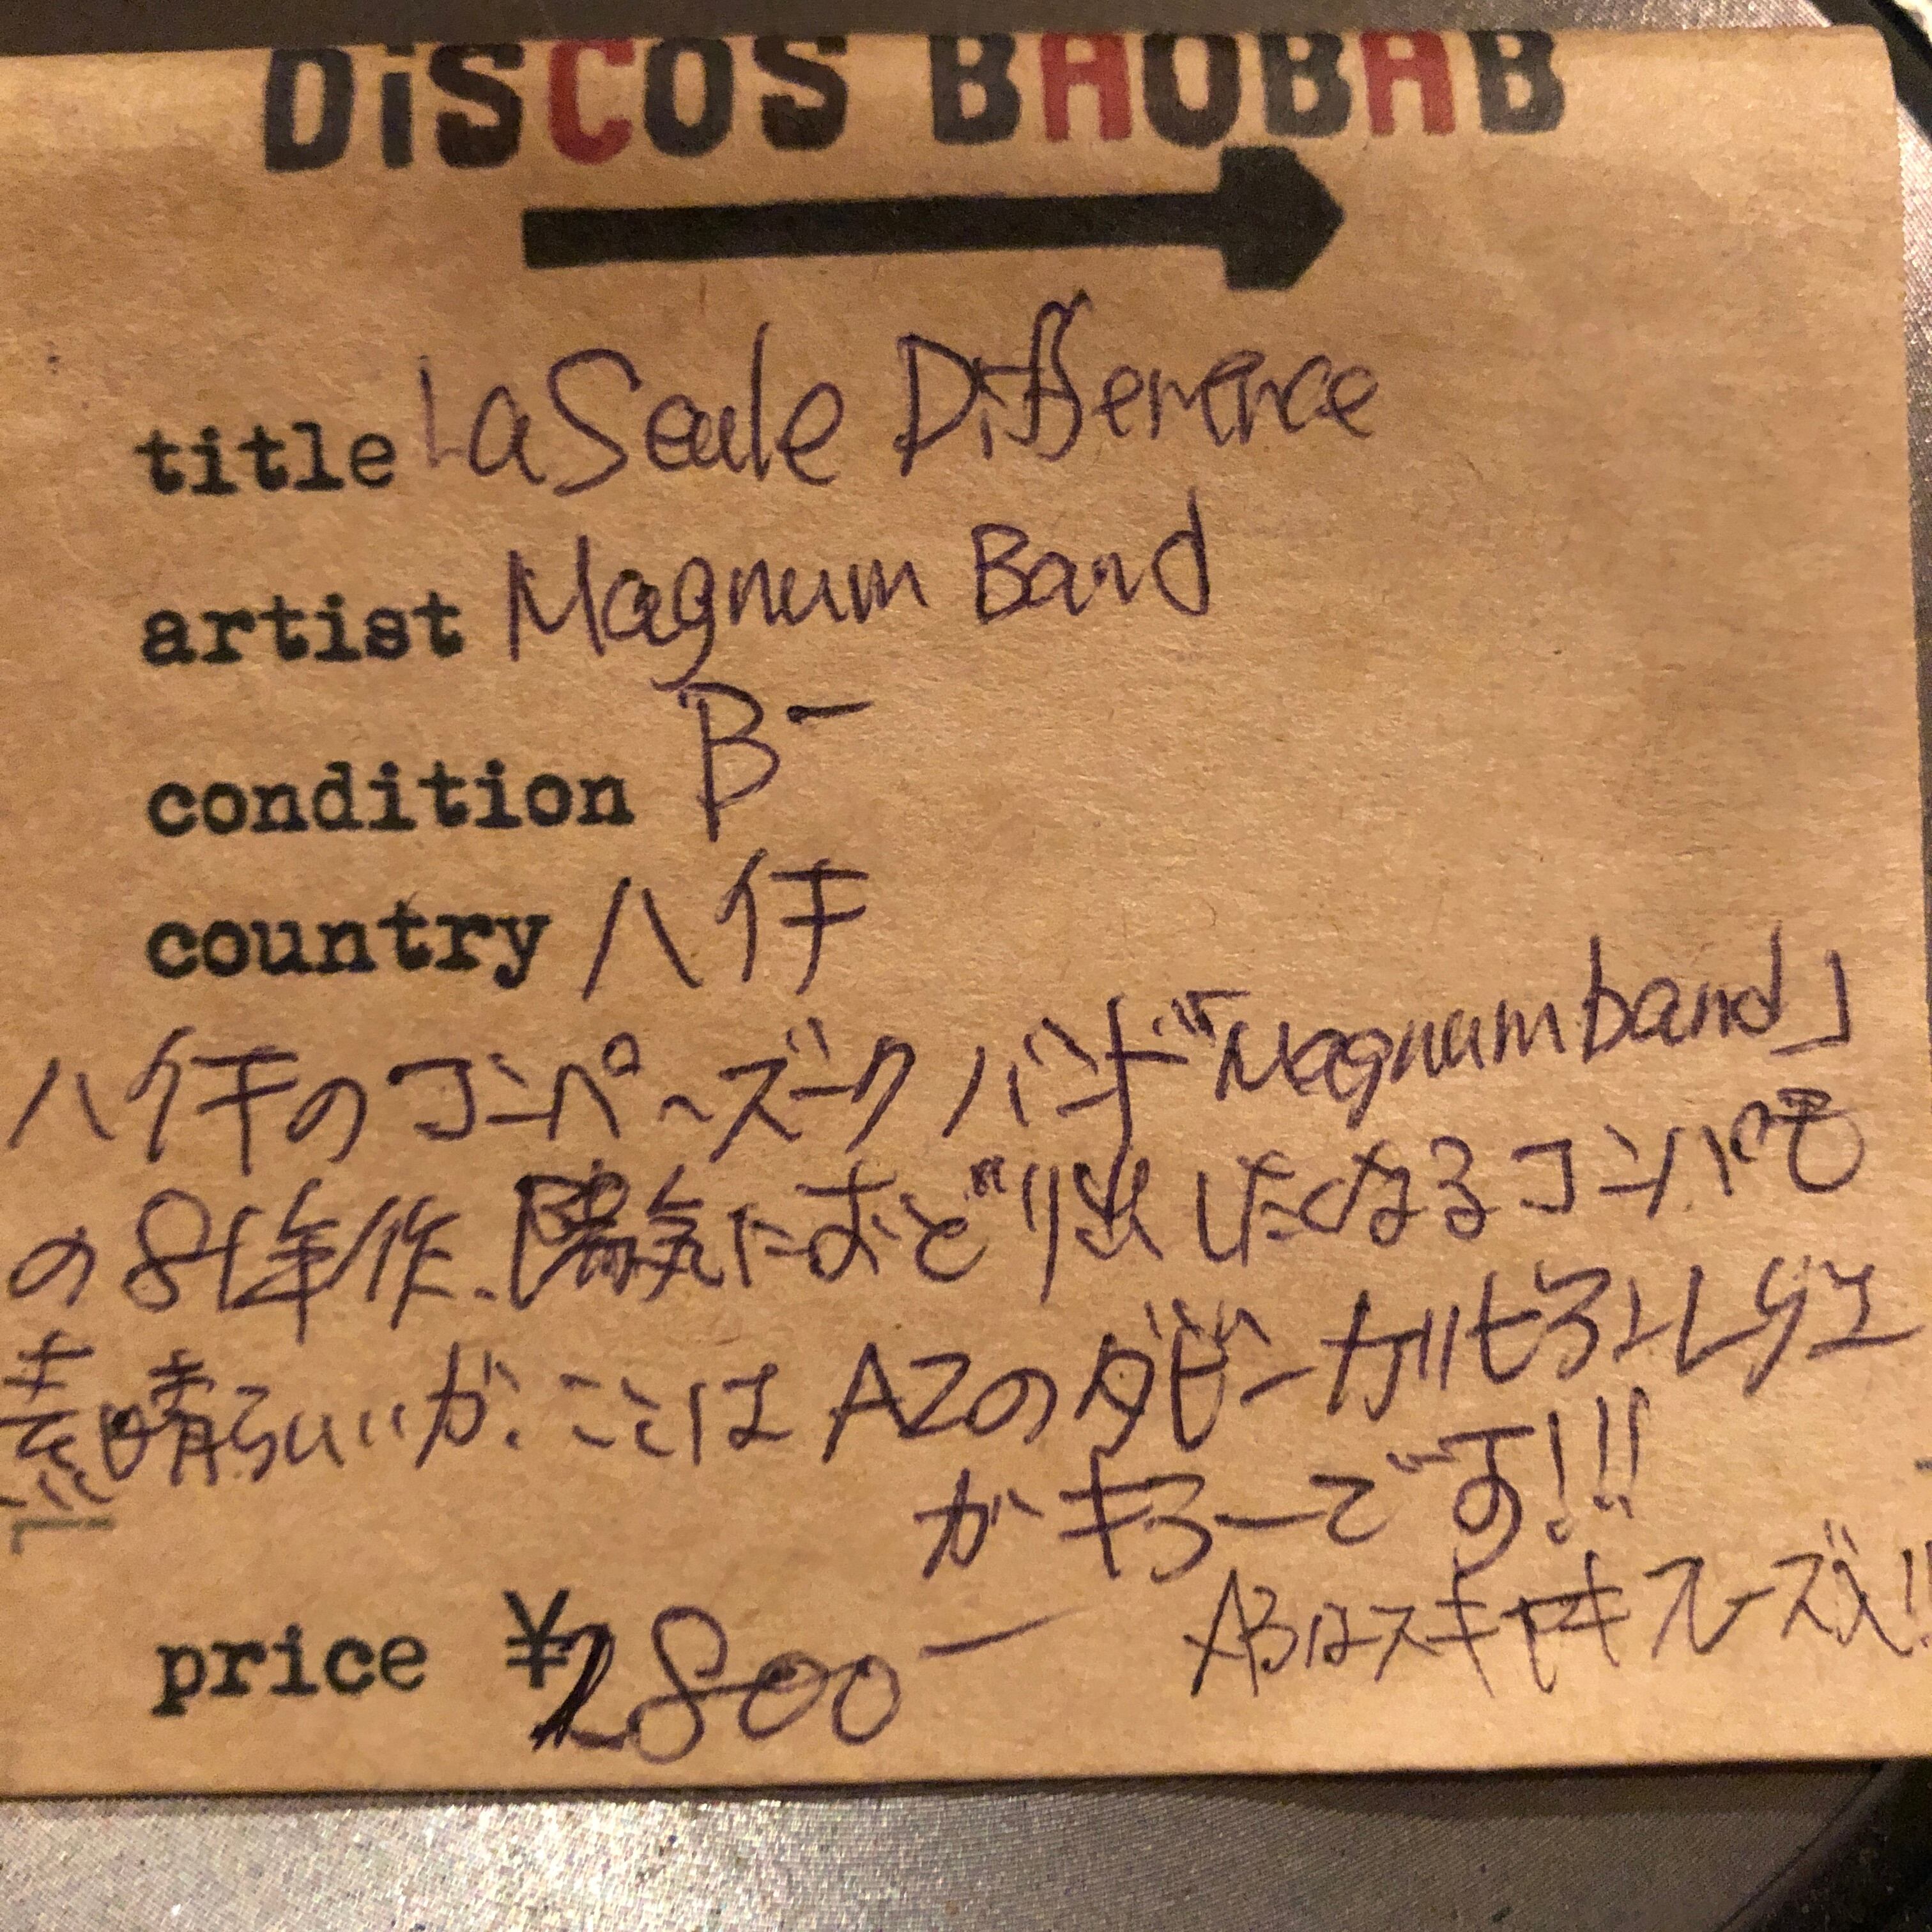 DiSCOS BAOBAB
title La Seule Difference
artist Magnum Band
condition B-
country ハイチ
ハイチのコンペ〜ズークバンド「Magnum band」
の81年作、陽気におどり出したくなるコンパも
素晴らしいが、ことは A2の ダビーかリビアンレゲエ
がキラーです!!!
price ¥2800-
ABはスキヤキ スーズ入!!